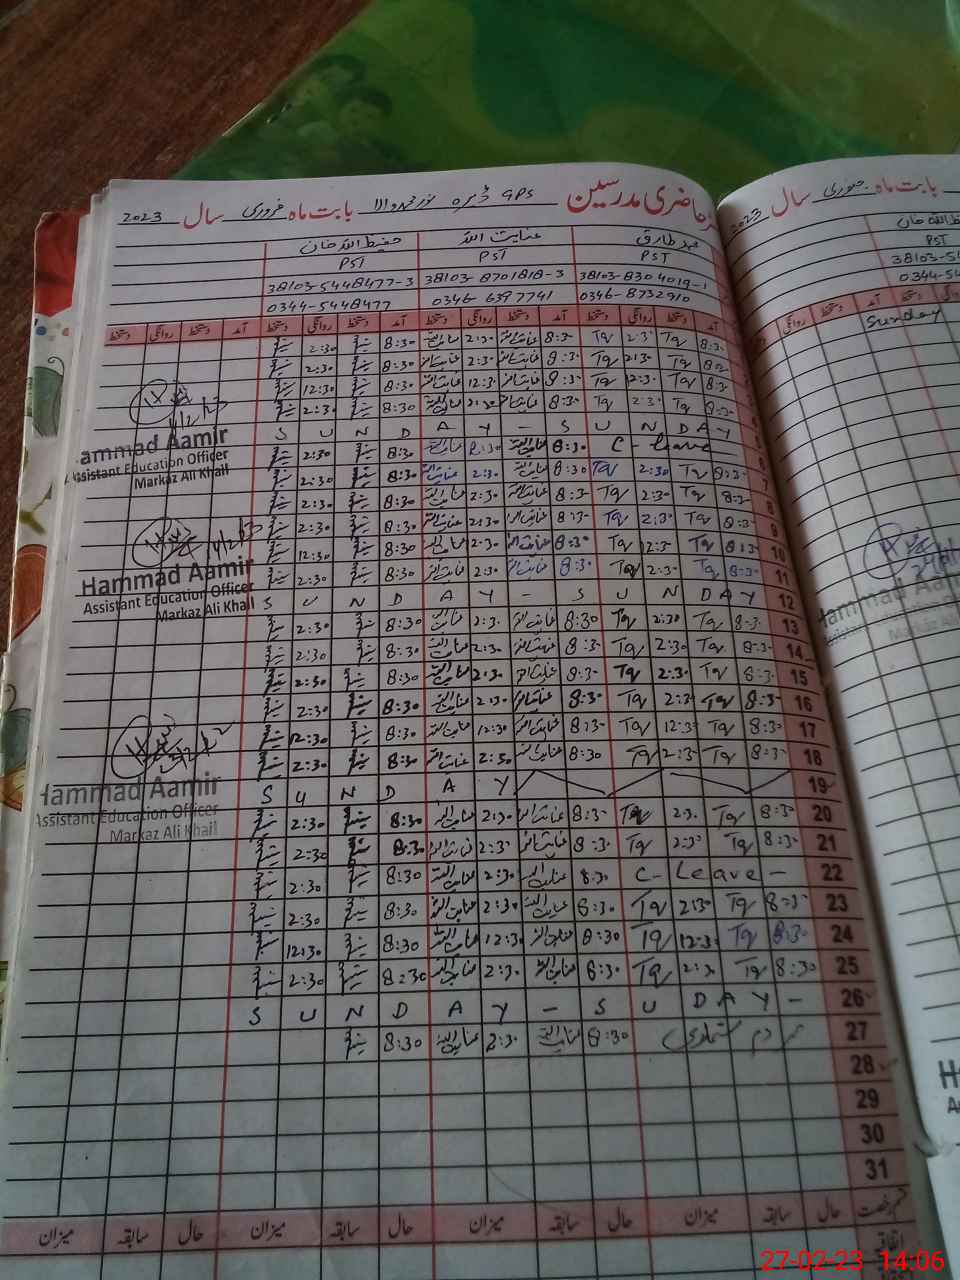 حاضری مدرسین GPS ڈیرہ نور محمد والا بابت ماہ فروری سال 2023
محمد طارق عنایت اللہ حفیظ اللہ خان
PST PST PST
38103-8304019-1 38103-8701818-3 38103-5448477-3
0346-8732910 0346-6397741 0344-5448477
آمد دستخط روانگی دستخط آمد دستخط روانگی دستخط آمد دستخط روانگی دستخط آمد دستخط روانگی دستخط
8:30 Tq 2:30 Tq 8:30 عنایت اللہ 2:30 عنایت اللہ 8:30 2:30
8:30 Tq 2:30 Tq 8:30 عنایت اللہ 2:30 عنایت اللہ 8:30 2:30
8:30 Tq 12:30 Tq 8:30 عنایت اللہ 12:30 عنایت اللہ 8:30 12:30
8:30 Tq 2:30 Tq 8:30 عنایت اللہ 2:30 عنایت اللہ 8:30 2:30
S U N D A Y - S U N D A Y
6 C - Leave 8:30 عنایت اللہ 2:30 عنایت اللہ 8:30 2:30
7 8:30 Tq 2:30 Tq 8:30 عنایت اللہ 2:30 عنایت اللہ 8:30 2:30
8 8:30 Tq 2:30 Tq 8:30 عنایت اللہ 2:30 عنایت اللہ 8:30 2:30
9 8:30 Tq 2:30 Tq 8:30 عنایت اللہ 2:30 عنایت اللہ 8:30 2:30
10 8:30 Tq 12:30 Tq 8:30 عنایت اللہ 2:30 عنایت اللہ 8:30 12:30
11 8:30 Tq 2:30 Tq 8:30 عنایت اللہ 2:30 عنایت اللہ 8:30 2:30
12 S U N D A Y - S U N D A Y
13 8:30 Tq 2:30 Tq 8:30 عنایت اللہ 2:30 عنایت اللہ 8:30 2:30
14 8:30 Tq 2:30 Tq 8:30 عنایت اللہ 2:30 عنایت اللہ 8:30 2:30
15 8:30 Tq 2:30 Tq 8:30 عنایت اللہ 2:30 عنایت اللہ 8:30 2:30
16 8:30 Tq 2:30 Tq 8:30 عنایت اللہ 2:30 عنایت اللہ 8:30 2:30
17 8:30 Tq 12:30 Tq 8:30 عنایت اللہ 12:30 عنایت اللہ 8:30 12:30
18 8:30 Tq 2:30 Tq 8:30 عنایت اللہ 2:30 عنایت اللہ 8:30 2:30
19 S U N D A Y
20 8:30 Tq 2:30 Tq 8:30 عنایت اللہ 2:30 عنایت اللہ 8:30 2:30
21 8:30 Tq 2:30 Tq 8:30 عنایت اللہ 2:30 عنایت اللہ 8:30 2:30
22 C - Leave - 8:30 عنایت اللہ 2:30 عنایت اللہ 8:30 2:30
23 8:30 Tq 2:30 Tq 8:30 عنایت اللہ 2:30 عنایت اللہ 8:30 2:30
24 8:30 Tq 12:30 Tq 8:30 عنایت اللہ 12:30 عنایت اللہ 8:30 12:30
25 8:30 Tq 2:30 Tq 8:30 عنایت اللہ 2:30 عنایت اللہ 8:30 2:30
26 S U N D A Y - S U D A Y -
27 مردم شماری 8:30 عنایت اللہ 2:30 عنایت اللہ 8:30
28
29
30
31
قسم رخصت حال سابقہ میزان حال سابقہ میزان حال سابقہ میزان حال سابقہ میزان
ammad Aamir
Assistant Education Officer
Markaz Ali Khail
Hammad Aamir
Assistant Education Officer
Markaz Ali Khail
Hammad Aamir
Assistant Education Officer
Markaz Ali Khail
بابت ماہ جنوری سال 2023
PST
Sunday
27-02-23 14:06